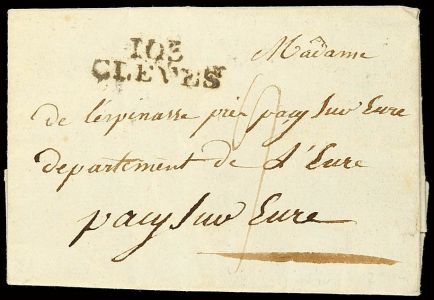 103
CLEVES
Madame
de Lespinasse près pacy Sur Eure
departement de L'Eure
pacy Sur Eure